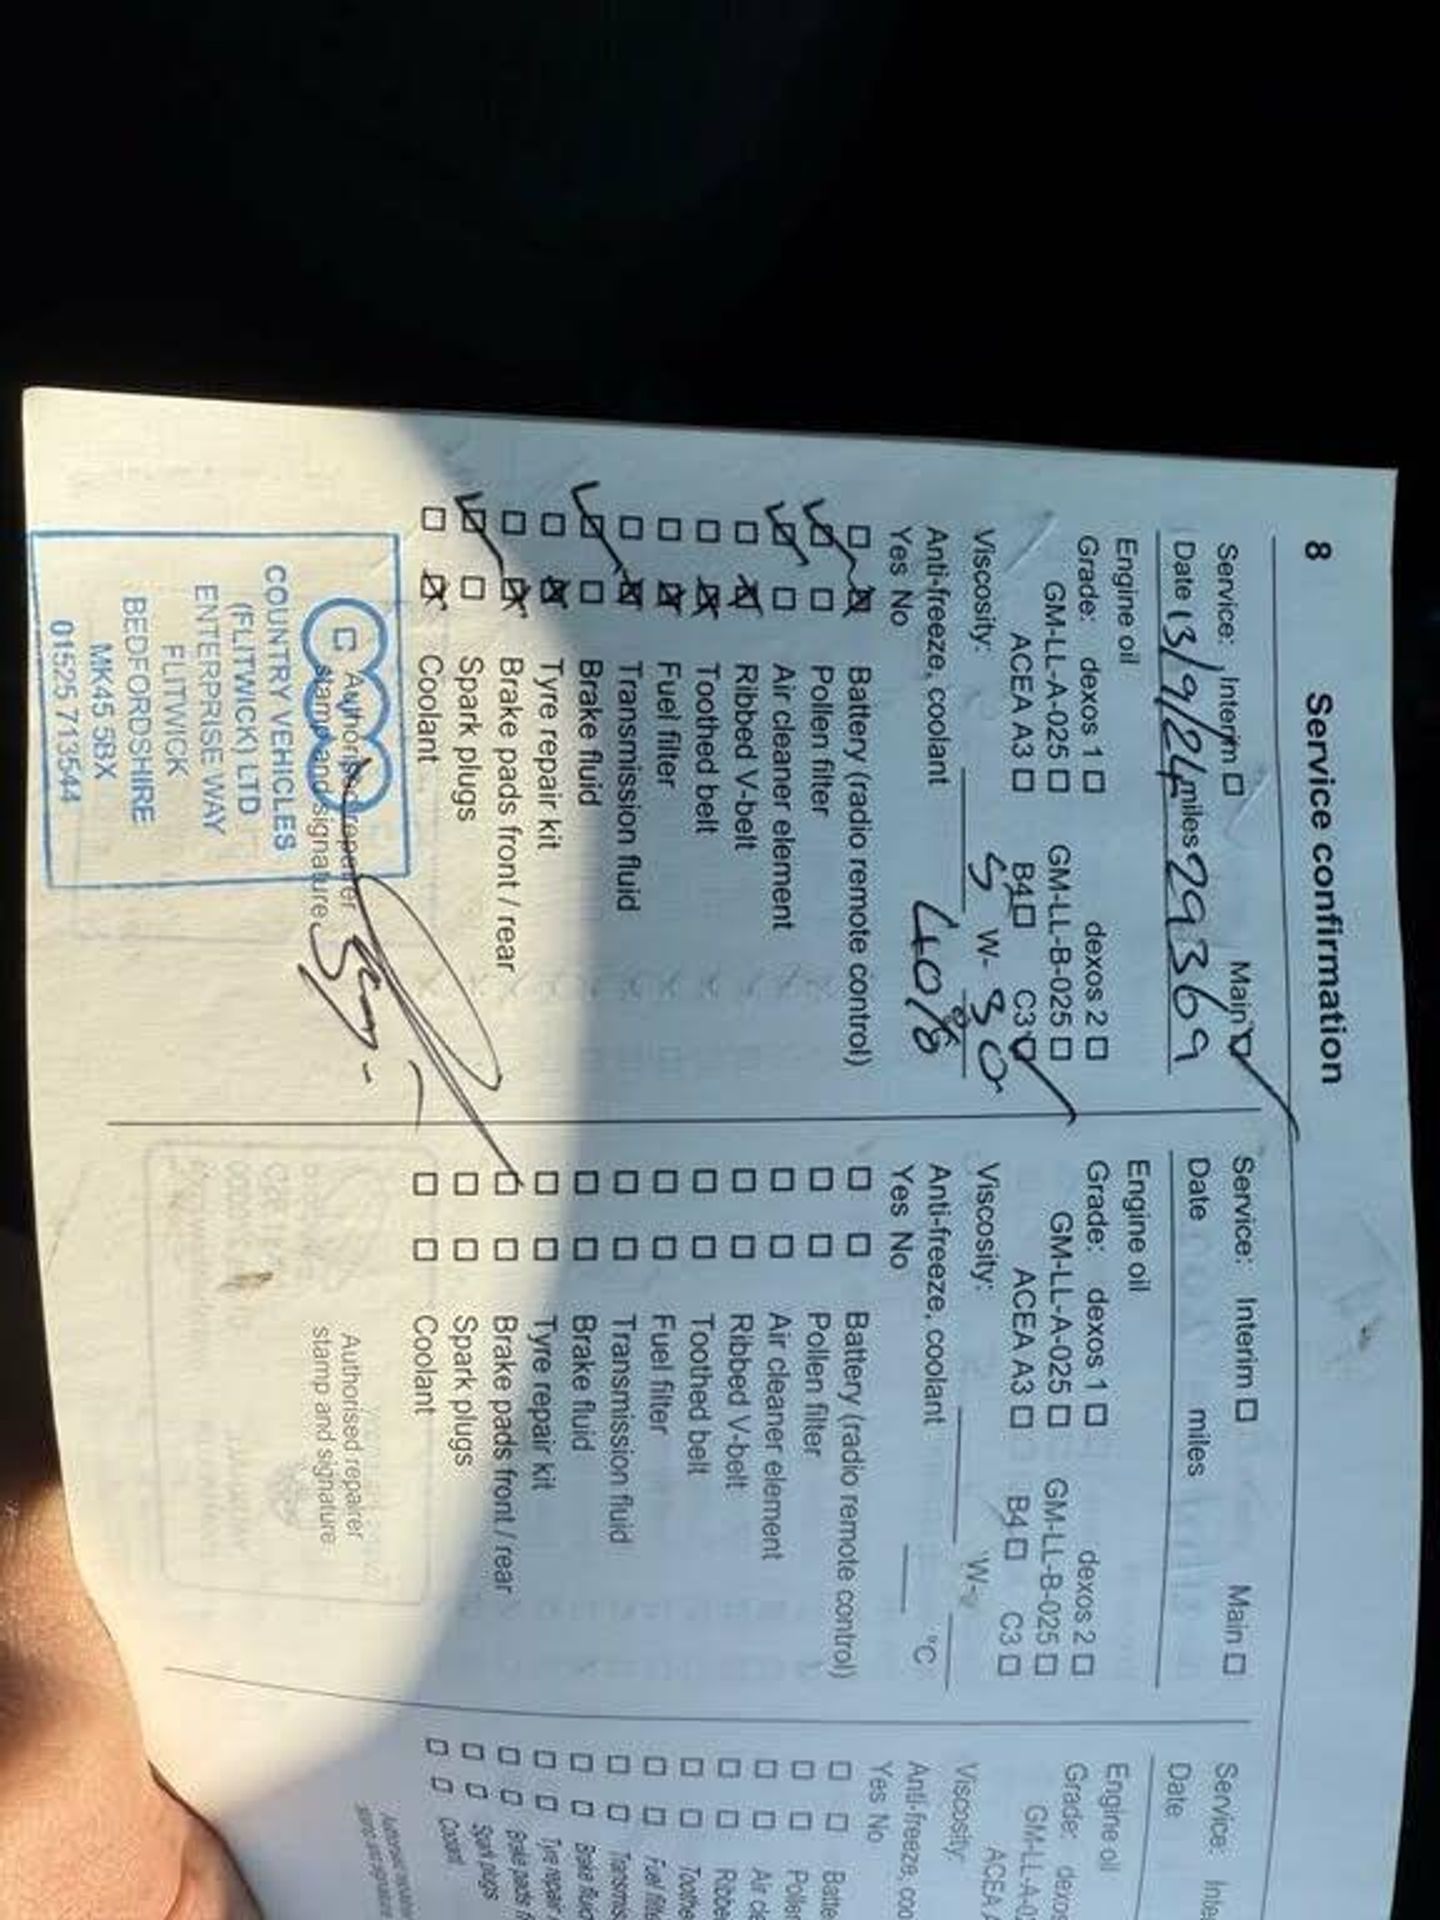 8 Service confirmation
Service: Interim ☐ Main ☑
Date 13/9/24 miles 29369
Engine oil
Grade: dexos 1 ☐ dexos 2 ☐
GM-LL-A-025 ☐ GM-LL-B-025 ☐
ACEA A3 ☐ B4 ☐ C3 ☑
Viscosity: 5 W- 30
Anti-freeze, coolant
Yes No
☐ ☒ Battery (radio remote control)
☑ ☐ Pollen filter
☑ ☐ Air cleaner element
☐ ☒ Ribbed V-belt
☐ ☒ Toothed belt
☐ ☒ Fuel filter
☐ ☒ Transmission fluid
☑ ☐ Brake fluid
☐ ☒ Tyre repair kit
☐ ☒ Brake pads front / rear
☑ ☐ Spark plugs
☐ ☒ Coolant
Authorised repairer
stamp and signature
COUNTRY VEHICLES
(FLITWICK) LTD
ENTERPRISE WAY
FLITWICK
BEDFORDSHIRE
MK45 5BX
01525 713544
Service: Interim ☐ Main ☐
Date miles
Engine oil
Grade: dexos 1 ☐ dexos 2 ☐
GM-LL-A-025 ☐ GM-LL-B-025 ☐
ACEA A3 ☐ B4 ☐ C3 ☐
Viscosity: W-
Anti-freeze, coolant °C
Yes No
☐ ☐ Battery (radio remote control)
☐ ☐ Pollen filter
☐ ☐ Air cleaner element
☐ ☐ Ribbed V-belt
☐ ☐ Toothed belt
☐ ☐ Fuel filter
☐ ☐ Transmission fluid
☐ ☐ Brake fluid
☐ ☐ Tyre repair kit
☐ ☐ Brake pads front / rear
☐ ☐ Spark plugs
☐ ☐ Coolant
Authorised repairer
stamp and signature
Service: Inter
Date
Engine oil
Grade: dexos
GM-LL-A-0
ACEA A
Viscosity:
Anti-freeze, coo
Yes No
☐ ☐ Batte
☐ ☐ Polle
☐ ☐ Air cle
☐ ☐ Ribbe
☐ ☐ Toothe
☐ ☐ Fuel filte
☐ ☐ Transmis
☐ ☐ Brake fluid
☐ ☐ Tyre repair
☐ ☐ Brake pads f
☐ ☐ Spark plugs
☐ ☐ Coolant